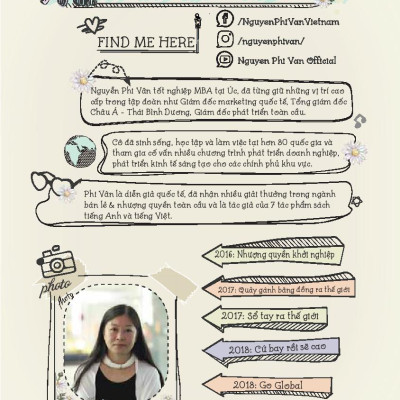 /NguyenPhiVanVietnam
FIND ME HERE
/nguyenphivan/
Nguyen Phi Van Official
Nguyễn Phi Vân tốt nghiệp MBA tại Úc, đã từng giữ những vị trí cao
cấp trong tập đoàn như Giám đốc marketing quốc tế, Tổng giám đốc
Châu Á - Thái Bình Dương, Giám đốc phát triển toàn cầu.
Cô đã sinh sống, học tập và làm việc tại hơn 80 quốc gia và
tham gia cố vấn nhiều chương trình phát triển doanh nghiệp,
phát triển kinh tế sáng tạo cho các chính phủ khu vực.
Phi Vân là diễn giả quốc tế, đã nhận nhiều giải thưởng trong ngành
bán lẻ & nhượng quyền toàn cầu và là tác giả của 7 tác phẩm sách
tiếng Anh và tiếng Việt.
2016: Nhượng quyền khởi nghiệp
photo
2017: Quảy gánh băng đồng ra thế giới
2017: Sổ tay ra thế giới
2018: Cứ bay rồi sẽ cao
2018: Go Global